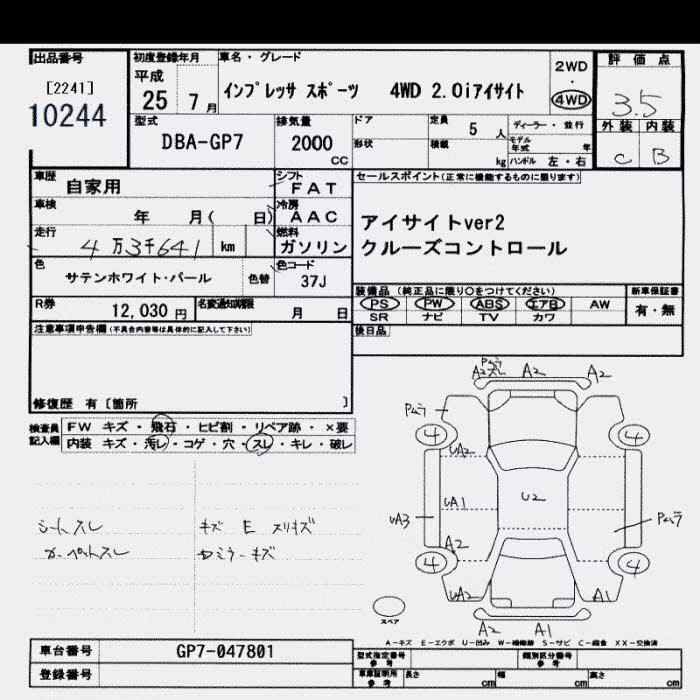 出品番号
[2241]
10244
初度登録年月
平成
25 7月
車名・グレード
インプレッサ スポーツ 4WD 2.0iアイサイト
2WD
・
4WD
評価点
3.5
外装 内装
C B
型式
DBA-GP7
排気量
2000
cc
ドア
形状
定員
5 人
積載
kg
ディーラー・並行
モデル年式 年
ハンドル 左・右
車歴
自家用
シフト
FAT
車検
年 月( 日)
冷房
AAC
走行
4万3千641 km
燃料
ガソリン
色
サテンホワイト・パール
色替
色コード
37J
R券
12,030 円
名変通知期限
月 日
セールスポイント(正常に機能するものに限ります)
アイサイトver2
クルーズコントロール
装備品 (純正品に限り○をつけてください)
PS PW ABS エアB AW
SR ナビ TV カワ
新車保証書
有・無
後日品
注意事項申告欄(不具合内容等は具体的に記入して下さい)
修復歴 有〔箇所 〕
検査員
記入欄
FW キズ・飛石・ヒビ割・リペア跡・×要
内装 キズ・汚レ・コゲ・穴・スレ・キレ・破レ
シートスレ
カーペットスレ
キズ E スリキズ
ミラーキズ
Pムラ
A2 A2 A2
Pムラ
4 4
UA2
UA1
U2
UA3
Pムラ
A2
4 4
UA2
A1
A2 A1
スペア
A-キズ E-エクボ U-凹み W-補修跡 S-サビ C-腐食 XX-交換済
車台番号
GP7-047801
登録番号
型式指定番号
参考
類別区分番号
参考
車庫証明用
参考
長さ cm
幅 cm
高さ cm